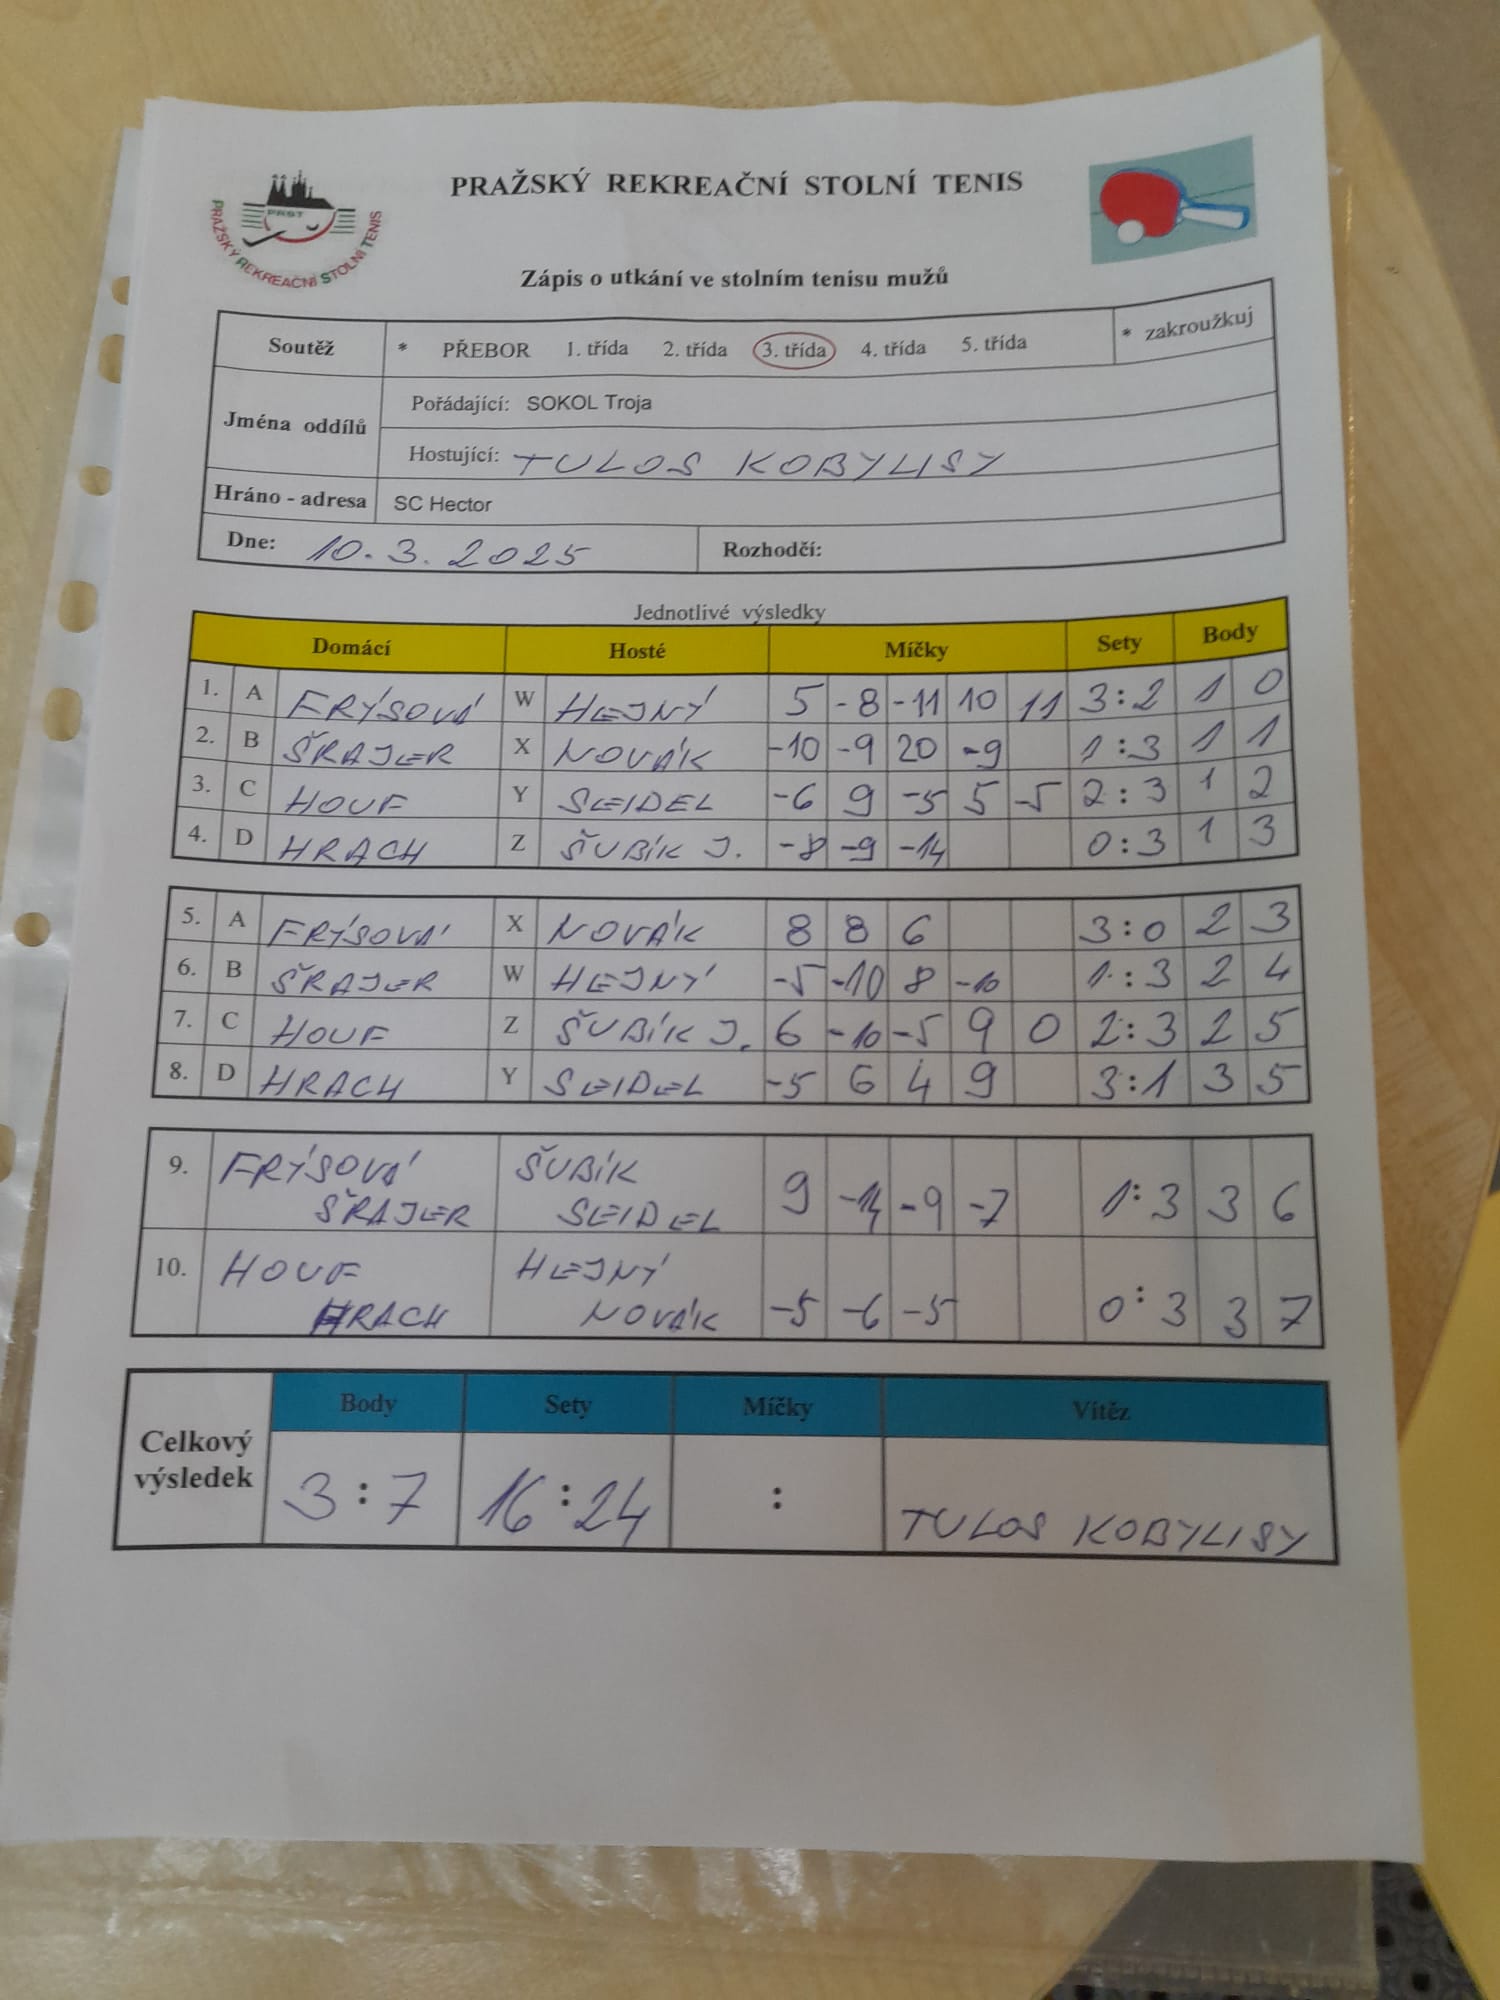 PRAŽSKÝ REKREAČNÍ STOLNÍ TENIS
PRST
PRAŽSKÝ REKREAČNÍ STOLNÍ TENIS
Zápis o utkání ve stolním tenisu mužů
Soutěž * PŘEBOR 1. třída 2. třída 3. třída 4. třída 5. třída * zakroužkuj
Jména oddílů
Pořádající: SOKOL Troja
Hostující: TULOS KOBYLISY
Hráno - adresa SC Hector
Dne: 10. 3. 2025 Rozhodčí:
Jednotlivé výsledky
Domácí Hosté Míčky Sety Body
1. A FRÝSOVÁ W HEJNÝ 5 -8 -11 10 11 3:2 1 0
2. B ŠRAJER X NOVÁK -10 -9 20 -9 1:3 1 1
3. C HOUF Y SEIDEL -6 9 -5 5 -5 2:3 1 2
4. D HRACH Z ŠUBÍK J. -8 -9 -14 0:3 1 3
5. A FRÝSOVÁ X NOVÁK 8 8 6 3:0 2 3
6. B ŠRAJER W HEJNÝ -5 -10 8 -10 1:3 2 4
7. C HOUF Z ŠUBÍK J. 6 -10 -5 9 0 2:3 2 5
8. D HRACH Y SEIDEL -5 6 4 9 3:1 3 5
9. FRÝSOVÁ ŠUBÍK
ŠRAJER SEIDEL 9 -14 -9 -7 1:3 3 6
10. HOUF HEJNÝ
HRACH NOVÁK -5 -6 -5 0:3 3 7
Celkový výsledek
Body Sety Míčky Vítěz
3:7 16:24 : TULOS KOBYLISY